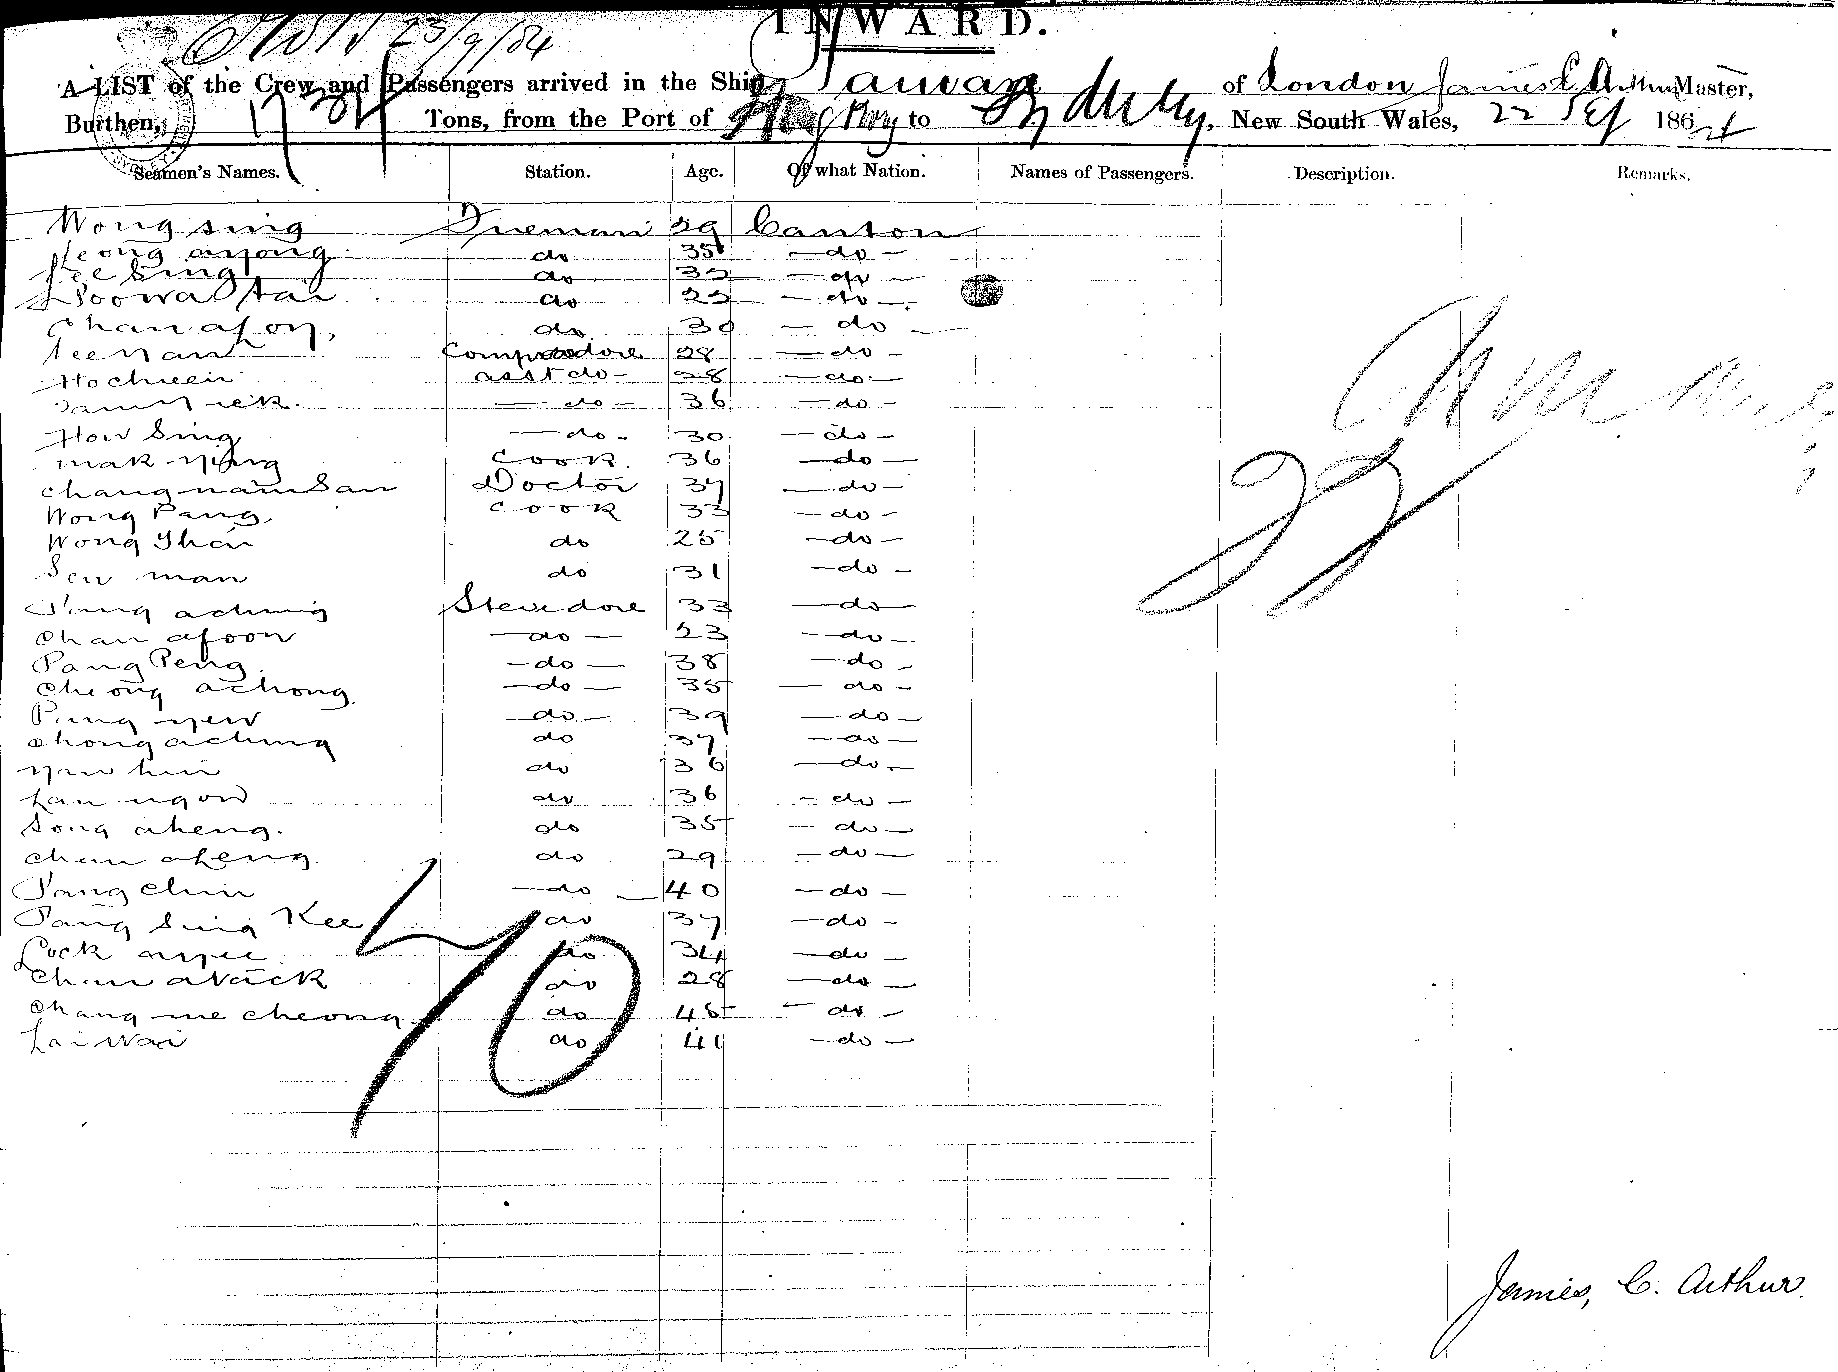 INWARD.
23/9/84
A LIST of the Crew and Passengers arrived in the Ship Taiwan of London James C Arthur Master,
Burthen, Tons, from the Port of Hong Kong to Sydney, New South Wales, 22 Sep 186
Seamen's Names. Station. Age. Of what Nation. Names of Passengers. Description. Remarks.
Wong sing Fireman 29 Canton
Leong ayong do 35 -do-
Lee Sing do 32 -do-
do -do-
Chan afoy, do 30 -do-
Compradore 28 -do-
Ho chueen asst do- 28 -do-
-do- 36 -do-
How Sing -do- 30 -do-
mak ying cook 36 -do-
chang nam San Doctor 37 -do-
Wong Pang cook 33 -do-
Wong Shen do 25 -do-
Seu man do 31 -do-
Pang aching Stevedore 33 -do-
Chan afoon -do- 23 -do-
Pang Peng -do- 38 -do-
Cheong achong -do- 35 -do-
Pang yew -do- 39 -do-
chong aching do 37 -do-
do 36 -do-
Lau ngow do 36 -do-
Song aheng. do 35 -do-
chan aheng do 29 -do-
Pang chin -do- 40 -do-
Pang Sing Kee do 37 -do-
Lock do 34 -do-
Chan atack do 28 -do-
Chang me cheong do 45 -do-
Lai Wai do 41 -do-
70
James, C. Arthur.